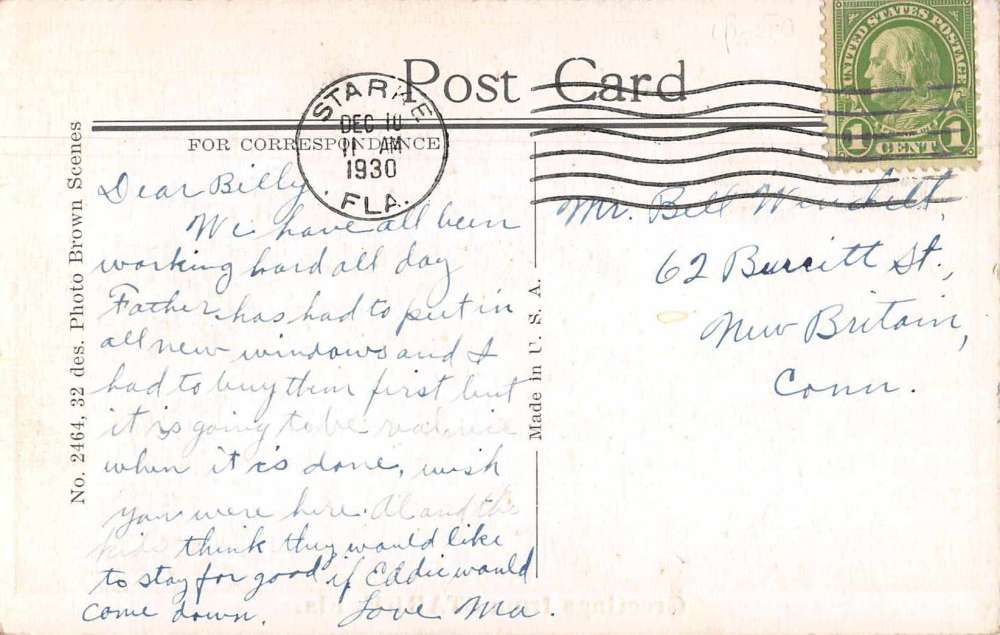 Post Card
UNITED STATES POSTAGE
1 CENT 1
STARKE
DEC 10
11 AM
1930
FLA.
FOR CORRESPONDENCE
No. 2464, 32 des. Photo Brown Scenes
Made in U. S. A.
Dear Billy
We have all been
working hard all day
Father has had to put in
all new windows and I
had to buy them first but
it is going to be real nice
when it is done, wish
you were here. Al and the
kids think they would like
to stay for good if Eddie would
come down. Love Ma.
Mr. Bill
62 Burritt St.,
New Britain,
Conn.
Greetings from